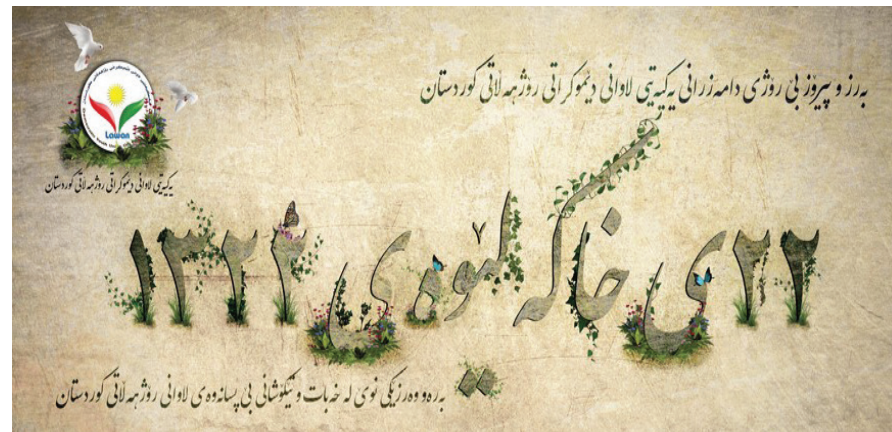 بەرز و پیرۆز بێ رۆژی دامەزرانی یەکیەتیی لاوانی دێموکراتی رۆژهەڵاتی کوردستان
Lawan
یەکیەتیی لاوانی دێموکراتی رۆژهەڵاتی کوردستان
٢٢ی خاکەلێوەی ١٣٢٤
بەرەو وەرزێکی نوێ لە خەبات و تێکۆشانی بێ پسانەوەی لاوانی رۆژهەڵاتی کوردستان